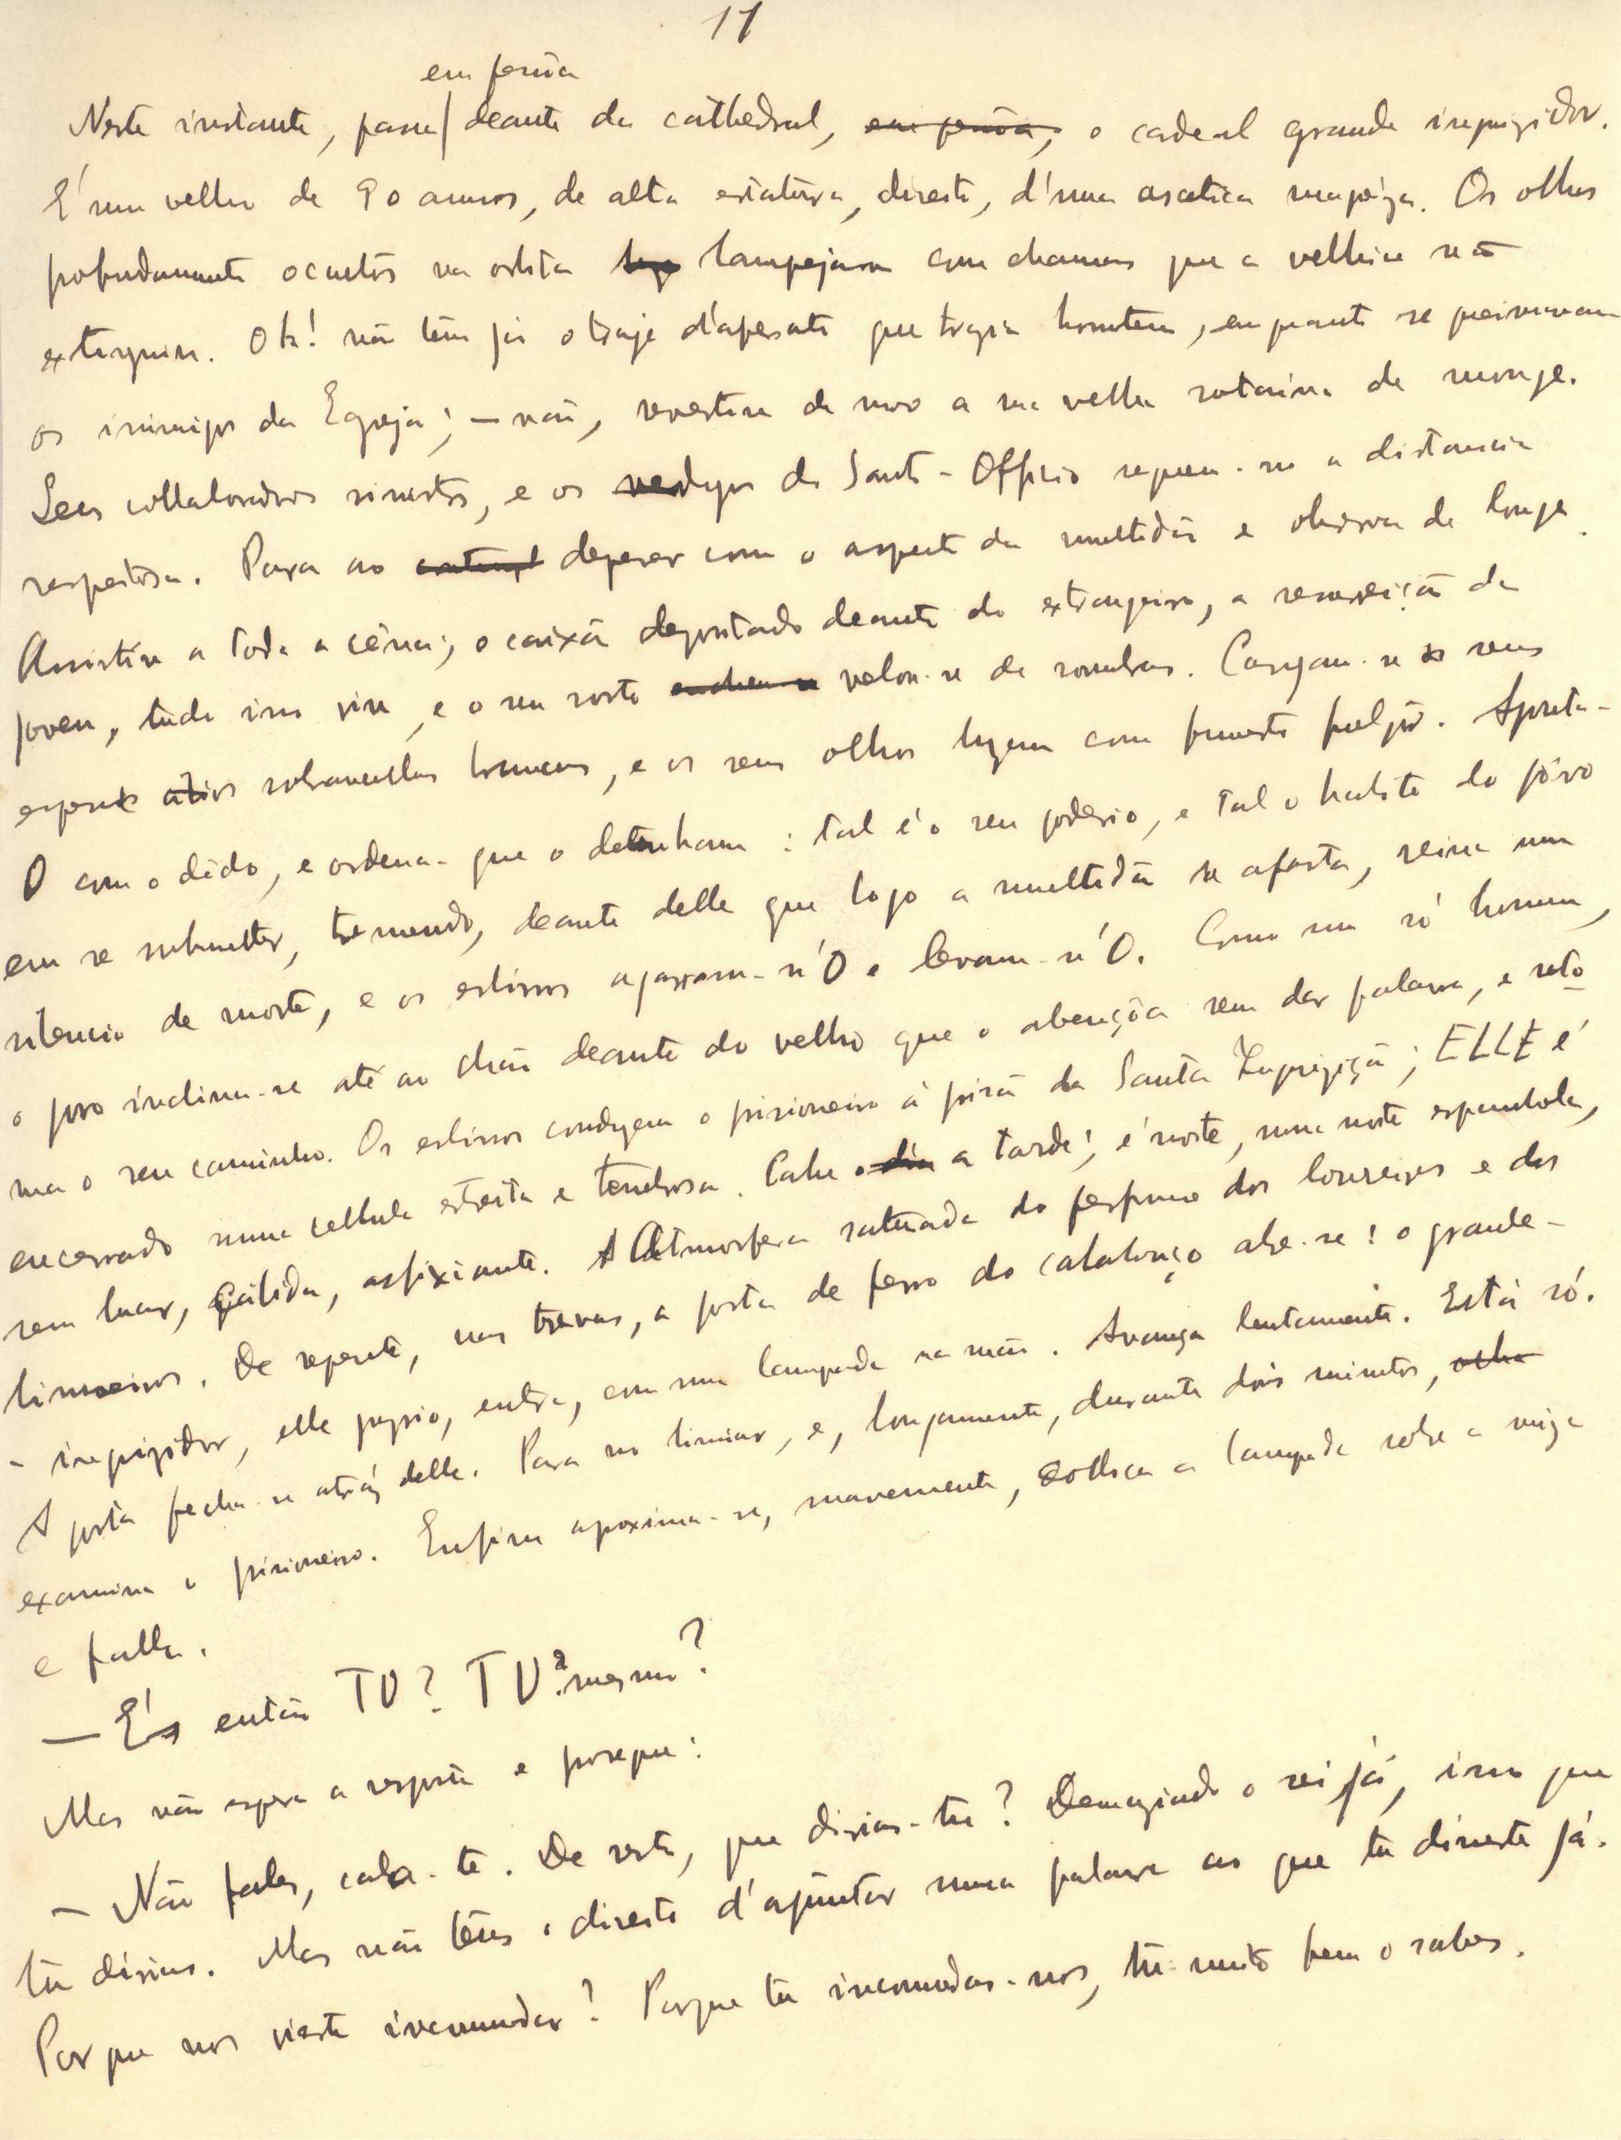 11
em pessoa
Neste instante, passa deante da cathedral, em pessoa, o cardeal grande inquizidor.
É um velho de 90 annos, de alta estatura, direito, d'uma ascetica magreza. Os olhos
profundamente occultos na orbita lampejam com chamas que a velhice não
extinguiu. Oh! não tem já o traje d'aparato que trazia hontem, emquanto se queimavam
os inimigos da Egreja; — não, revestiu de novo a sua velha sotaina de monge.
Seus collaboradores sinistros, e os verdugos do Santo-Officio seguem-no a distancia
respeitosa. Para ao deparar com o aspecto da multidão e observa de longe.
Assistiu a toda a cêna; o caixão depositado deante do extrangeiro, a resurreição da
joven, tudo isso viu, e o seu rosto velou-se de sombras. Carregam-se os seus
espessos sobrancelhas brancas, e os seus olhos luzem com funesto fulgôr. Aponta-
O com o dêdo, e ordena que o detenham: tal é o seu poderio, e tal o habito do pôvo
em se submetter, tremendo, deante delle que logo a multidão se afasta, reina um
silencio de morte, e os esbirros agarram-n'O e levam-n'O. Como um só homem,
o povo inclina-se até ao chão deante do velho que o abençôa sem dar palavra, e reto-
ma o seu caminho. Os esbirros conduzem o prisioneiro á prisão da Santa Inquizição; ELLE é
encerrado numa cellula estreita e tenebrosa. Cahe o dia a tarde; é noite, uma noite espanhola,
sem luar, cálida, asfixiante. A Atmosfera saturada do perfume dos loureiros e dos
limoeiros. De repente, nas trevas, a porta de ferro do calabouço abre-se: o grande-
- inquizidor, elle proprio, entra, com uma lampada na mão. Avança lentamente. Está só.
A porta fecha-se atráz delle. Para no limiar, e, longamente, durante dois minutos, olha
examina o prisioneiro. Enfim aproxima-se, suavemente, colloca a lampada sobre a meza
e falla.
— És então TU? TU? mesmo?
Mas não espera a resposta e prosegue:
— Não fales, cala-te. De resto, que dirias-tu? Demaziado o sei já, isso que
tu dirias. Mas não têns o direito d'ajuntar uma palavra ao que tu disseste já.
Por que nos vieste incomodar? Porque tu incomodas-nos, tu muito bem o sabes.